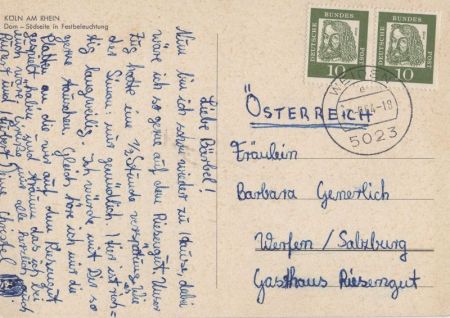 KÖLN AM RHEIN
Dom – Südseite in Festbeleuchtung
Liebe Bärbel!
Nun bin ich schon wieder zu Hause, dabei
wäre ich so gerne auf dem Riesengut. Unser
Zug hatte eine 1/2 Stunde Verspätung. Die
der Simon: nur gemütlich. Hier ist rich=
tig langweilig. Ich würde mit Dir so
gerne tauschen. Gleich höre ich mir die
Platten an die wir auf dem Riesengut
gespielt haben und träume das ich bei
Euch wäre. Grüße mir alle herzlich auch
Rupert und Deine Christel
DEUTSCHE BUNDESPOST
10
DEUTSCHE BUNDESPOST
10
64-18
5023
ÖSTERREICH
Fräulein
Barbara Generlich
Werfen/Salzburg
Gasthaus Riesengut